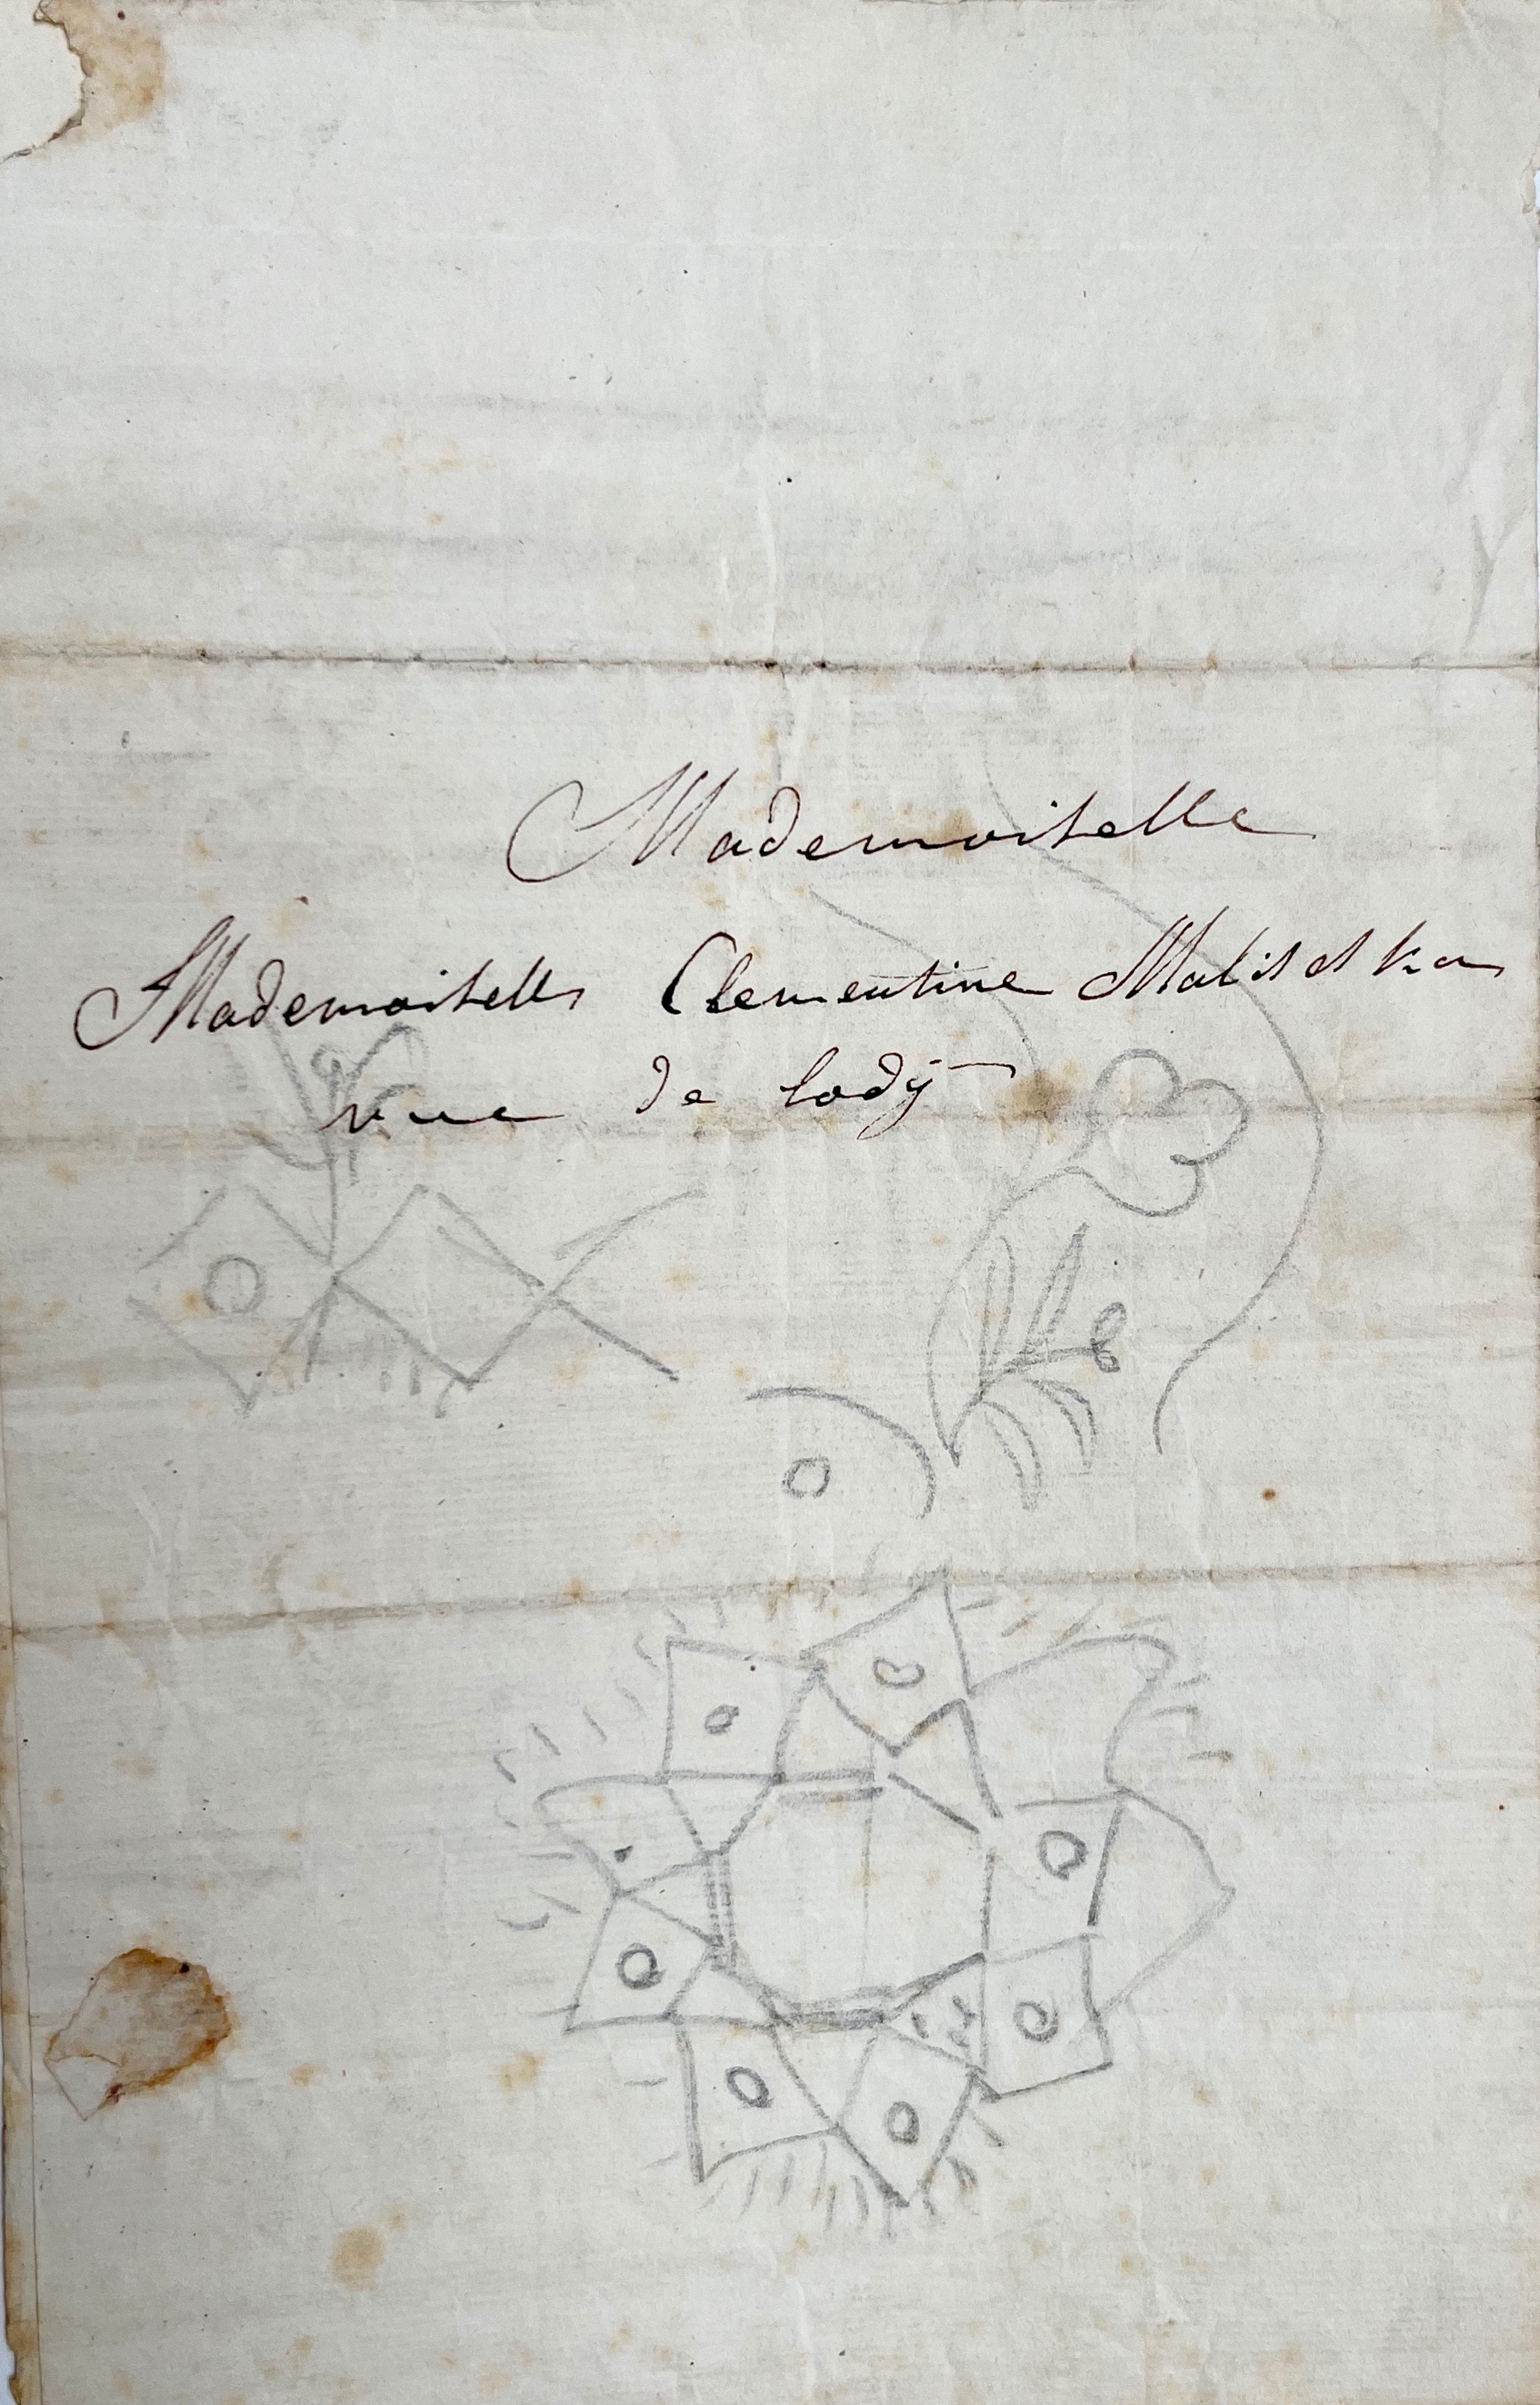 Mademoiselle
Mademoiselle Clementine
rue de Lodÿ